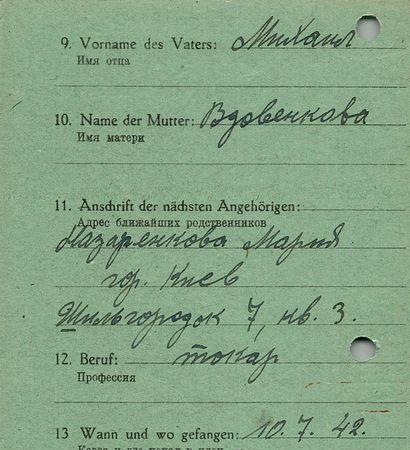 9. Vorname des Vaters: Михаил
Имя отца
10. Name der Mutter: Вдовенкова
Имя матери
11. Anschrift der nächsten Angehörigen:
Адрес ближайших родственников
Назаренкова Мария
гор. Киев
7, кв. 3.
12. Beruf: токар
Профессия
13 Wann und wo gefangen: 10.7.42.